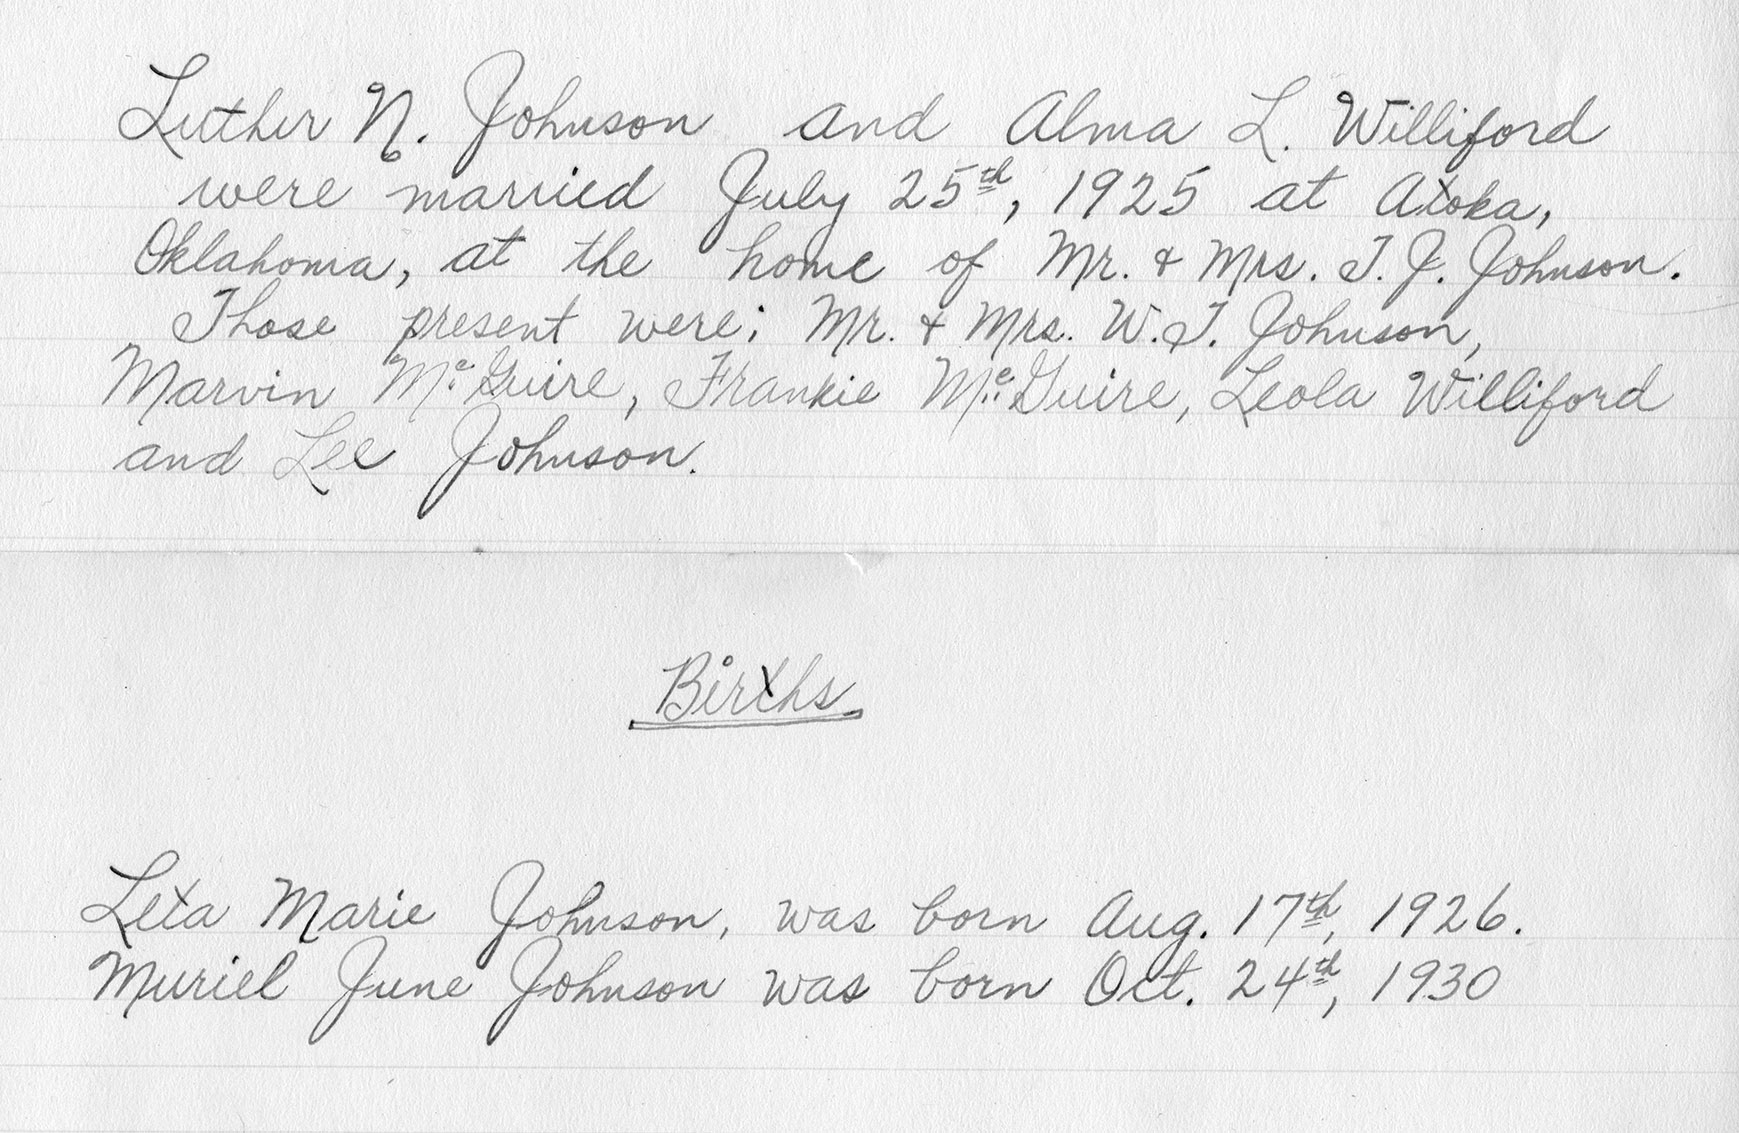 Luther N. Johnson and Alma L. Williford
were married July 25th, 1925 at Atoka,
Oklahoma, at the home of Mr. & Mrs. T. J. Johnson.
Those present were; Mr. & Mrs. W. T. Johnson,
Marvin McGuire, Frankie McGuire, Leola Williford
and Lee Johnson.
Births
Leta Marie Johnson, was born Aug. 17th, 1926.
Muriel June Johnson was born Oct. 24th, 1930